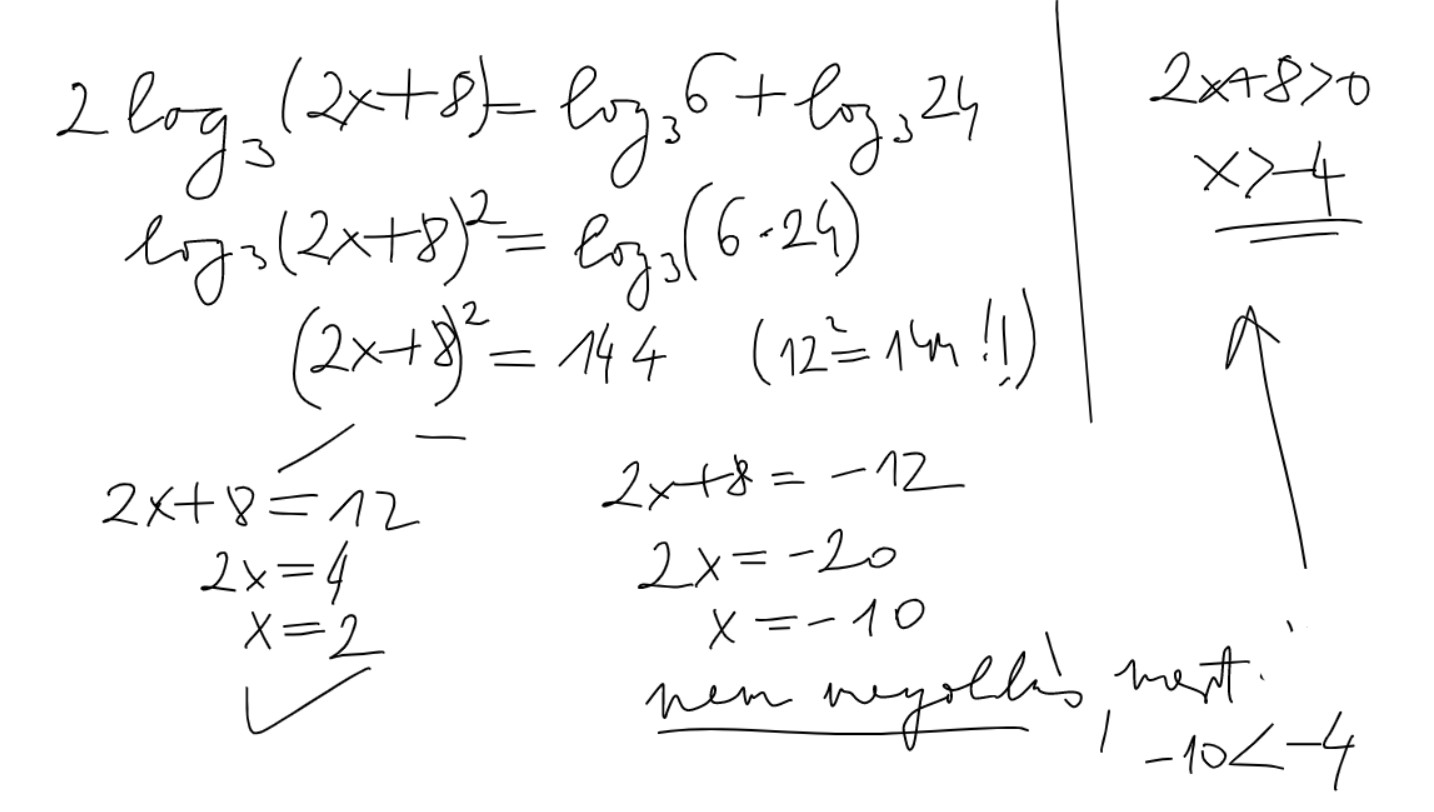 2 log₃(2x+8) = log₃6 + log₃24
log₃(2x+8)² = log₃(6·24)
(2x+8)² = 144 (12² = 144 !!)
2x+8 = 12
2x = 4
x = 2
2x+8 = -12
2x = -20
x = -10
nem megoldás, mert
-10 < -4
2x+8 > 0
x > -4